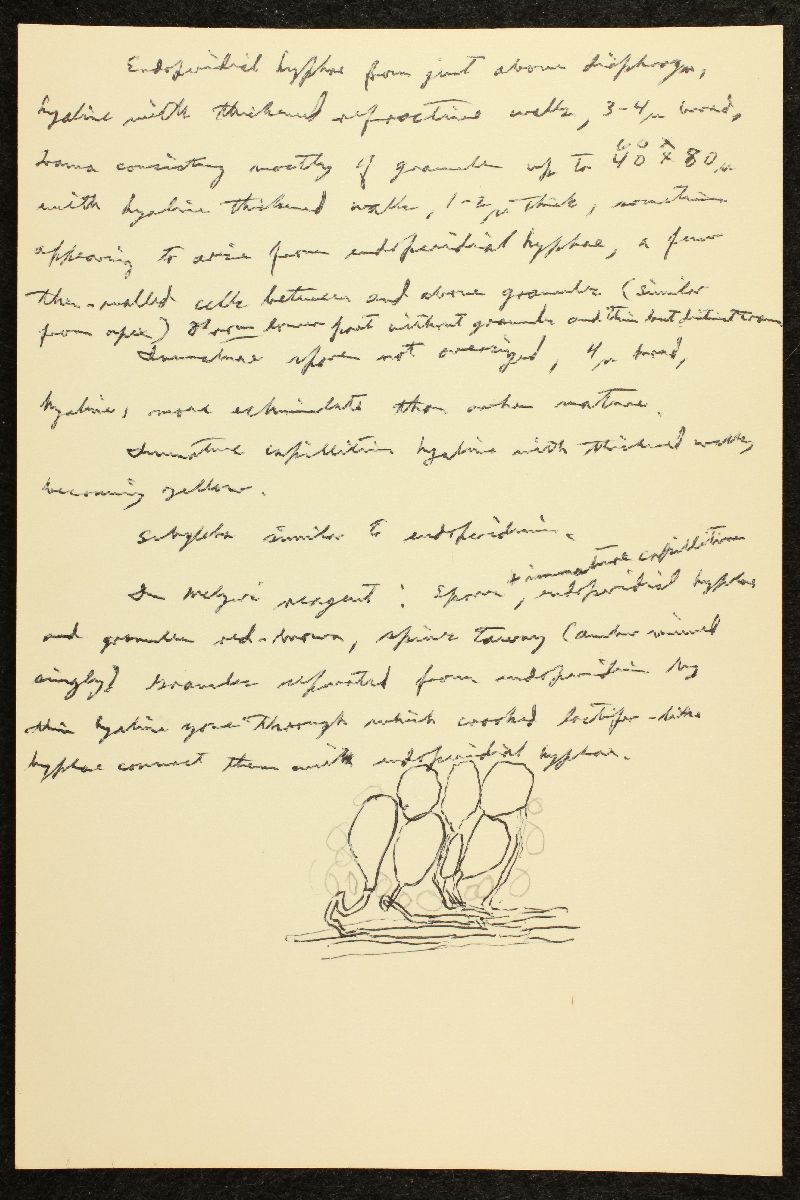 Endoperidial hyphae from just above diaphragm,
hyaline with thickened refractive walls, 3-4μ broad,
consisting mostly of granules up to 40 x 80μ
60 x
with hyaline thickened walls, 1-2μ thick, sometimes
appearing to arise from endoperidial hyphae, a few
thin-walled cells between and above granules (similar
from apex) lower part without granules and thin but distinct
Immature spores not oversized, 4μ broad,
hyaline, more echinulate than when mature.
Immature capillitium hyaline with thickened walls,
becoming yellow.
similar to endoperidium.
+ immature capillitium
In Melzer's reagent: Spores, endoperidial hyphae
and granules red-brown, spines tawny (when viewed
singly) Granules separated from endoperidium by
thin hyaline zone through which crooked lactifer-like
hyphae connect them with endoperidial hyphae.